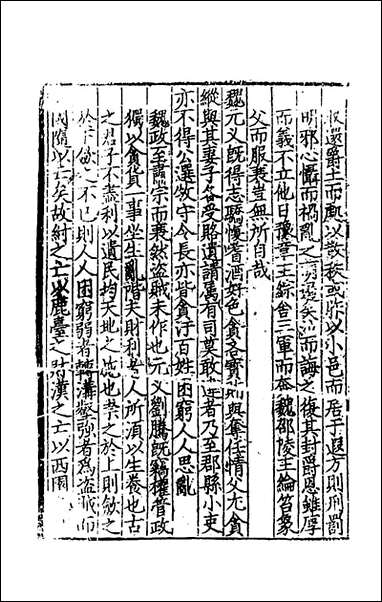 還爵土而厲以散秩或以小邑而居于遐方則刑罰
明邪心懾而禍亂之萌遏矣泣而誨之復其封爵恩雖厚
而義不立他日豫章王綜舍三軍而奔魏邵陵王綸笞象
父而服衰豈無所自哉
魏元义旣得志驕愎耆酒好色貪吝寳賄與奪任情父尢貪
縱與其妻子各受賂遺請屬有司莫敢違者乃至郡縣小吏
亦不得公選牧守令長亦皆貪汙百姓困窮人人思亂
魏政至肅宗而衰然盗賊未作也元义劉騰旣竊權政
獨以貪貨一事坐生亂階夫財利者人所須以生養也古
之君子不盡利以遺民均天地之施也之於上則斂之
於下欲之不已則人人困窮弱者轉溝壑強者爲盗賊而
國隨以亡矣故紂之亡以鹿臺之財漢之亡以西園